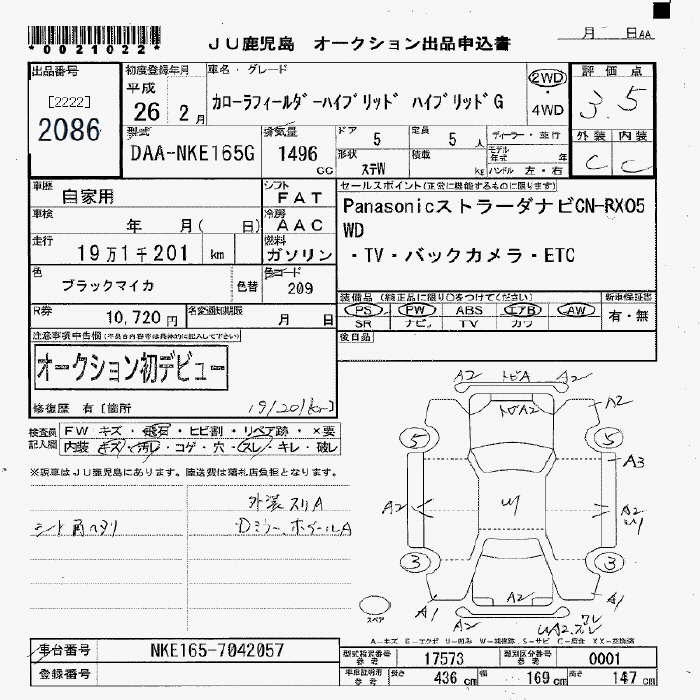 *0021022*
JU鹿児島 オークション出品申込書
月 日AA
出品番号
[2222]
2086
初度登録年月
平成
26 2月
車名・グレード
カローラフィールダーハイブリッド ハイブリッドG
2WD
・
4WD
評価点
3.5
外装 内装
C C
型式
DAA-NKE165G
排気量
1496
cc
ドア
5
定員
5 人
形状
ステW
積載
kg
ディーラー・並行
モデル年式 年
ハンドル 左・右
車歴
自家用
シフト
FAT
車検
年 月( 日)
冷房
AAC
走行
19万1千201 km
燃料
ガソリン
色
ブラックマイカ
色替
色コード
209
セールスポイント(正常に機能するものに限ります)
PanasonicストラーダナビCN-RX05
WD
・TV・バックカメラ・ETC
R券
10,720円
名変通知期限
月 日
装備品(純正品に限り○をつけてください)
PS PW ABS エアB AW
SR ナビ TV カワ
新車保証書
有・無
後日品
注意事項申告欄
オークション初デビュー
修復歴 有[箇所
191201(km)
検査員記入欄
FW キズ・飛石・ヒビ割・リペア跡・×要
内装 キズ・汚レ・コゲ・穴・スレ・キレ・破レ
※現車はJU鹿児島にあります。陸送費は落札店負担となります。
外装スリA
シート角ヘタリ
A2 トビA A2
トビA2
A2
5 5
A3
A2
W1
A2
W1
3 3
A2
A1 A1
A2
スペア
A-キズ E-エクボ U-凹み W-補修跡 S-サビ C-腐食 XX-交換済
車台番号
NKE165-7042057
登録番号
型式指定番号
参考
17573
類別区分番号
参考
0001
車車証明用
参考
長さ
436 cm
幅
169 cm
高さ
147 cm